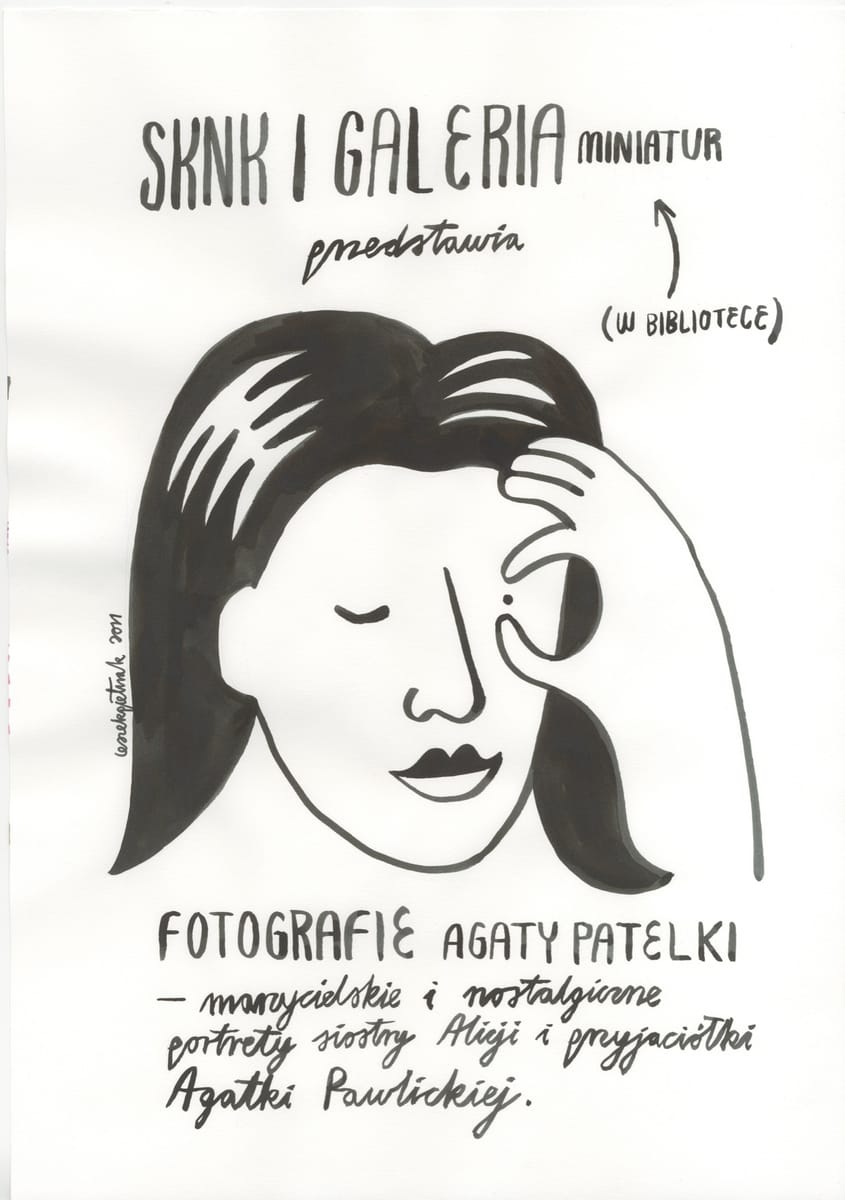 SKNK I GALERIA MINIATUR
przedstawia
(W BIBLIOTECE)
leszekpietrzak 2021
FOTOGRAFIE AGATY PATELKI
– marzycielskie i nostalgiczne
portrety siostry Alicji i przyjaciółki
Agatki Pawlickiej.